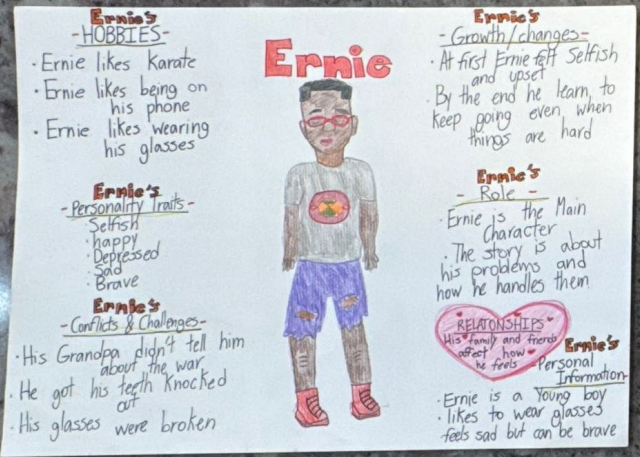 Ernie's
-HOBBIES-
· Ernie likes Karate
· Ernie likes being on
his phone
· Ernie likes wearing
his glasses
Ernie's
-Personality Traits-
· Selfish
· happy
· Depressed
· Sad
· Brave
Ernie's
-Conflicts & Challenges-
· His Grandpa didn't tell him
about the war
· He got his teeth knocked
out
· His glasses were broken
Ernie
Ernie's
-Growth/changes-
· At first Ernie felt Selfish
and upset
· By the end he learn, to
keep going even when
things are hard
Ernie's
- Role -
· Ernie is the Main
Character
· The story is about
his problems and
how he handles them
RELATIONSHIPS
His family and friends
affect how
he feels
Ernie's
Personal
Information-
· Ernie is a Young boy
· likes to wear glasses
feels sad but can be brave